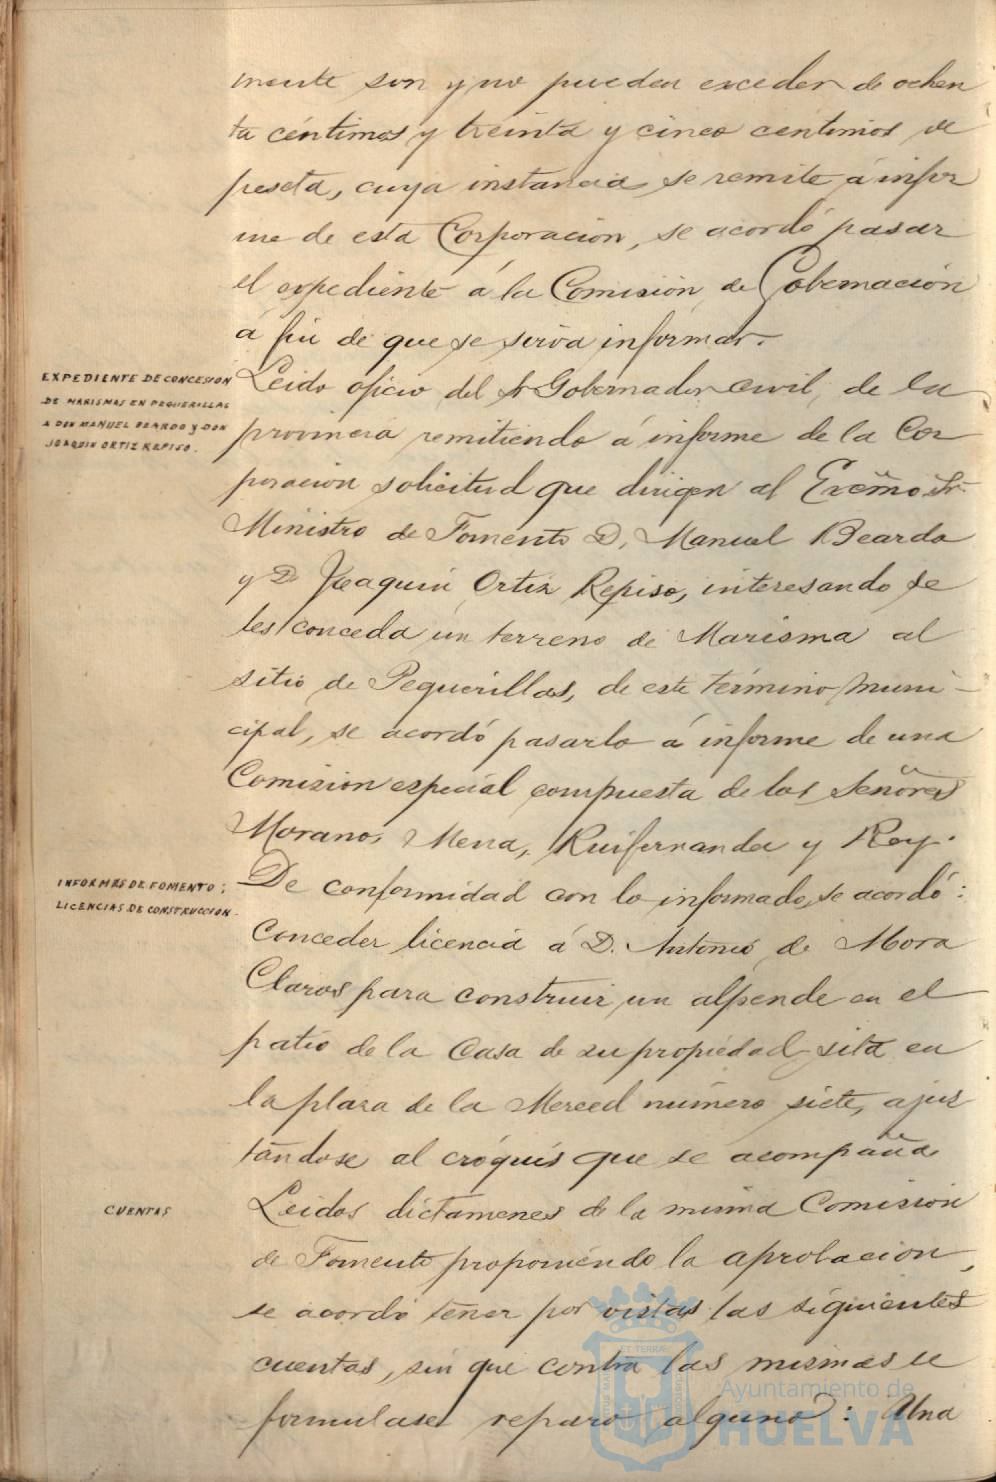 mente son y no pueden exceder de ochen
ta céntimos y treinta y cinco centimos de
peseta, cuya instancia se remite á infor
me de esta Corporacion, se acordó pasar
el expediente á la Comisión de Gobernación
á fin de que se sirva informar.
EXPEDIENTE DE CONCESION
DE MARISMAS EN PEGUERILLAS
A DON MANUEL BEARDO Y DON
JOAQUIN ORTIZ REPISO.
Leido oficio del Sr Gobernador civil, de la
provincia remitiendo á informe de la Cor
poracion solicitud que dirigen al Excmo Sr.
Ministro de Fomento D. Manuel Beardo
y D. Joaquin Ortiz Repiso, interesando se
les conceda un terreno de Marisma al
sitio de Peguerillas, de este término muni-
cipal, se acordó pasarlo á informe de una
Comision especial compuesta de los Señores
Morano, Mena, Ruifernandez y Rey.
INFORMES DE FOMENTO;
LICENCIAS DE CONSTRUCCION.
De conformidad con lo informado, se acordó:
Conceder licencia á D. Antonio de Mora
Claros para construir un alpende en el
patio de la Casa de su propiedad sita en
la plaza de la Merced número siete, ajus
tándose al cróquis que se acompaña
CUENTAS
Leidos dictamenes de la misma Comision
de Fomento proponiendo la aprobacion,
se acordó tener por vistas las siguientes
cuentas, sin que contra las mismas se
formulase reparo alguno: Una
Ayuntamiento de
HUELVA